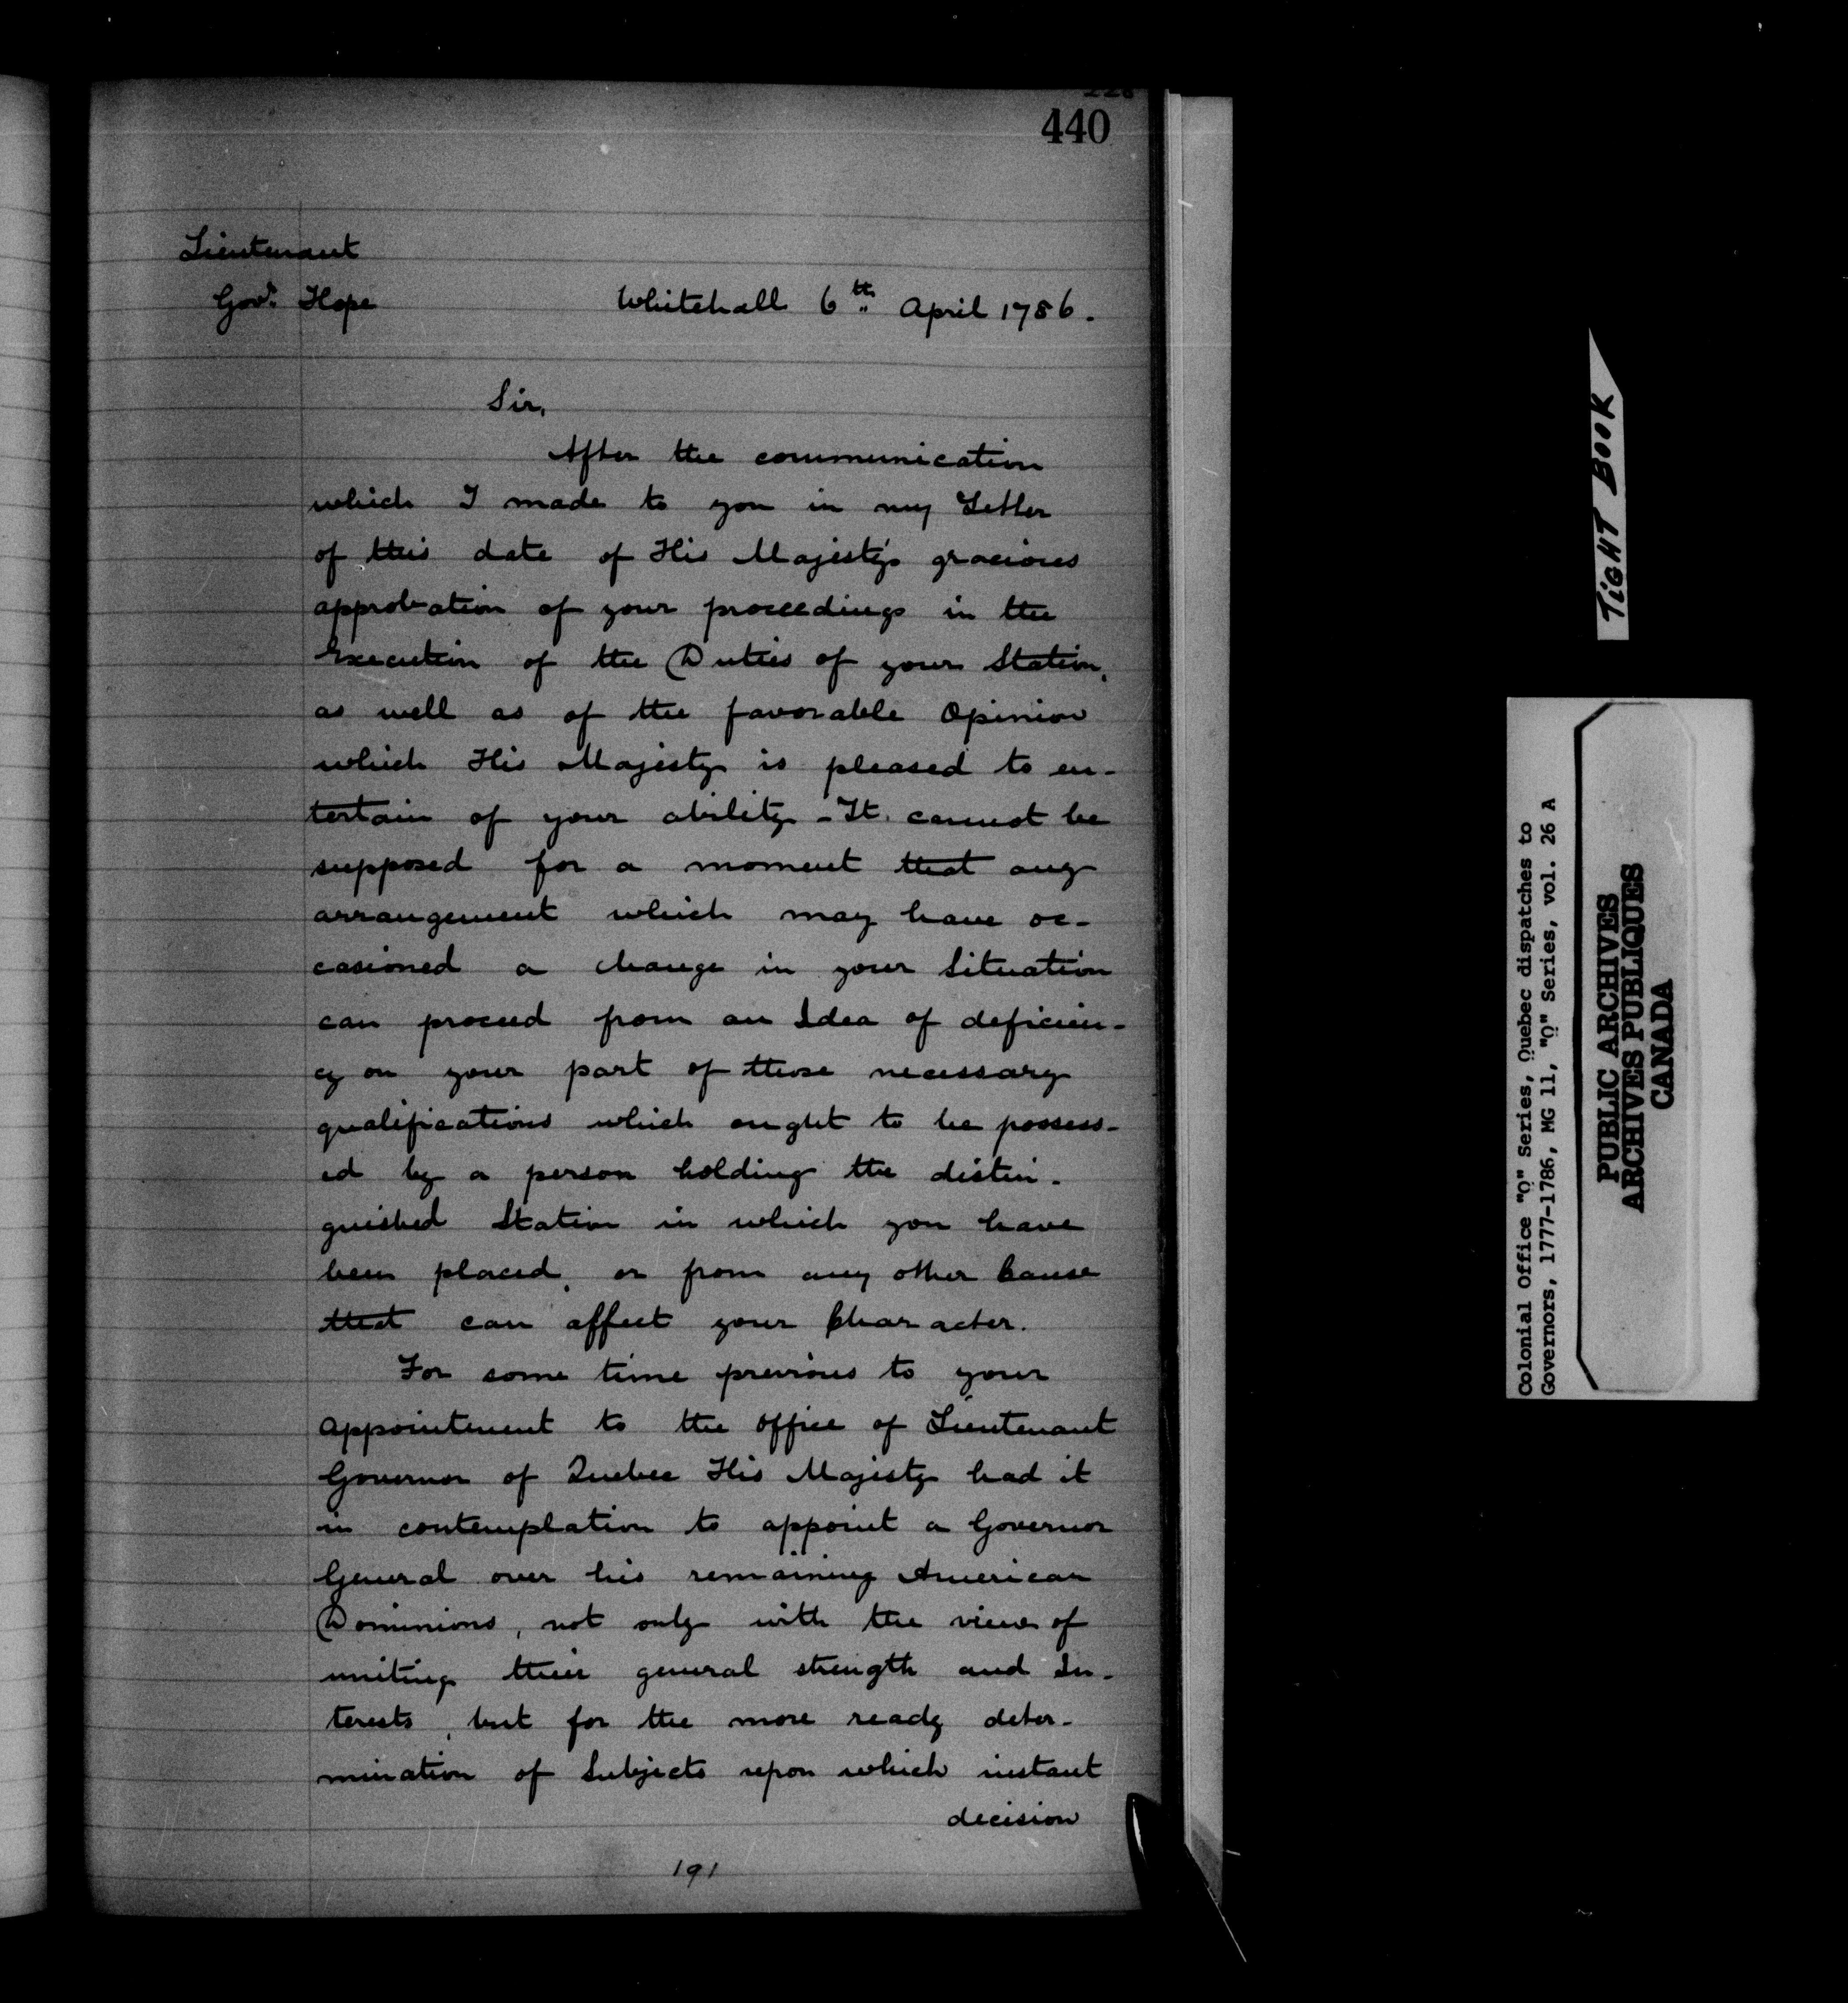 440
Lieutenant
Govr. Hope
Whitehall 6th April 1786.
Sir,
After the communication
which I made to you in my Letter
of this date of His Majesty's gracious
approbation of your proceedings in the
Execution of the Duties of your Station,
as well as of the favorable Opinion
which His Majesty is pleased to en-
tertain of your ability - It cannot be
supposed for a moment that any
arrangement which may have oc-
casioned a change in your Situation
can proceed from an Idea of deficien-
cy on your part of those necessary
qualifications which ought to be possess-
ed by a person holding the distin-
guished Station in which you have
been placed, or from any other Cause
that can affect your Character.
For some time previous to your
appointment to the Office of Lieutenant
Governor of Quebec His Majesty had it
in contemplation to appoint a Governor
General over his remaining American
Dominions, not only with the view of
uniting their general strength and In-
terests, but for the more ready deter-
mination of Subjects upon which instant
decision
191
TIGHT BOOK
Colonial Office "Q" Series, Quebec dispatches to
Governors, 1777-1786, MG 11, "Q" Series, vol. 26 A
PUBLIC ARCHIVES
ARCHIVES PUBLIQUES
CANADA